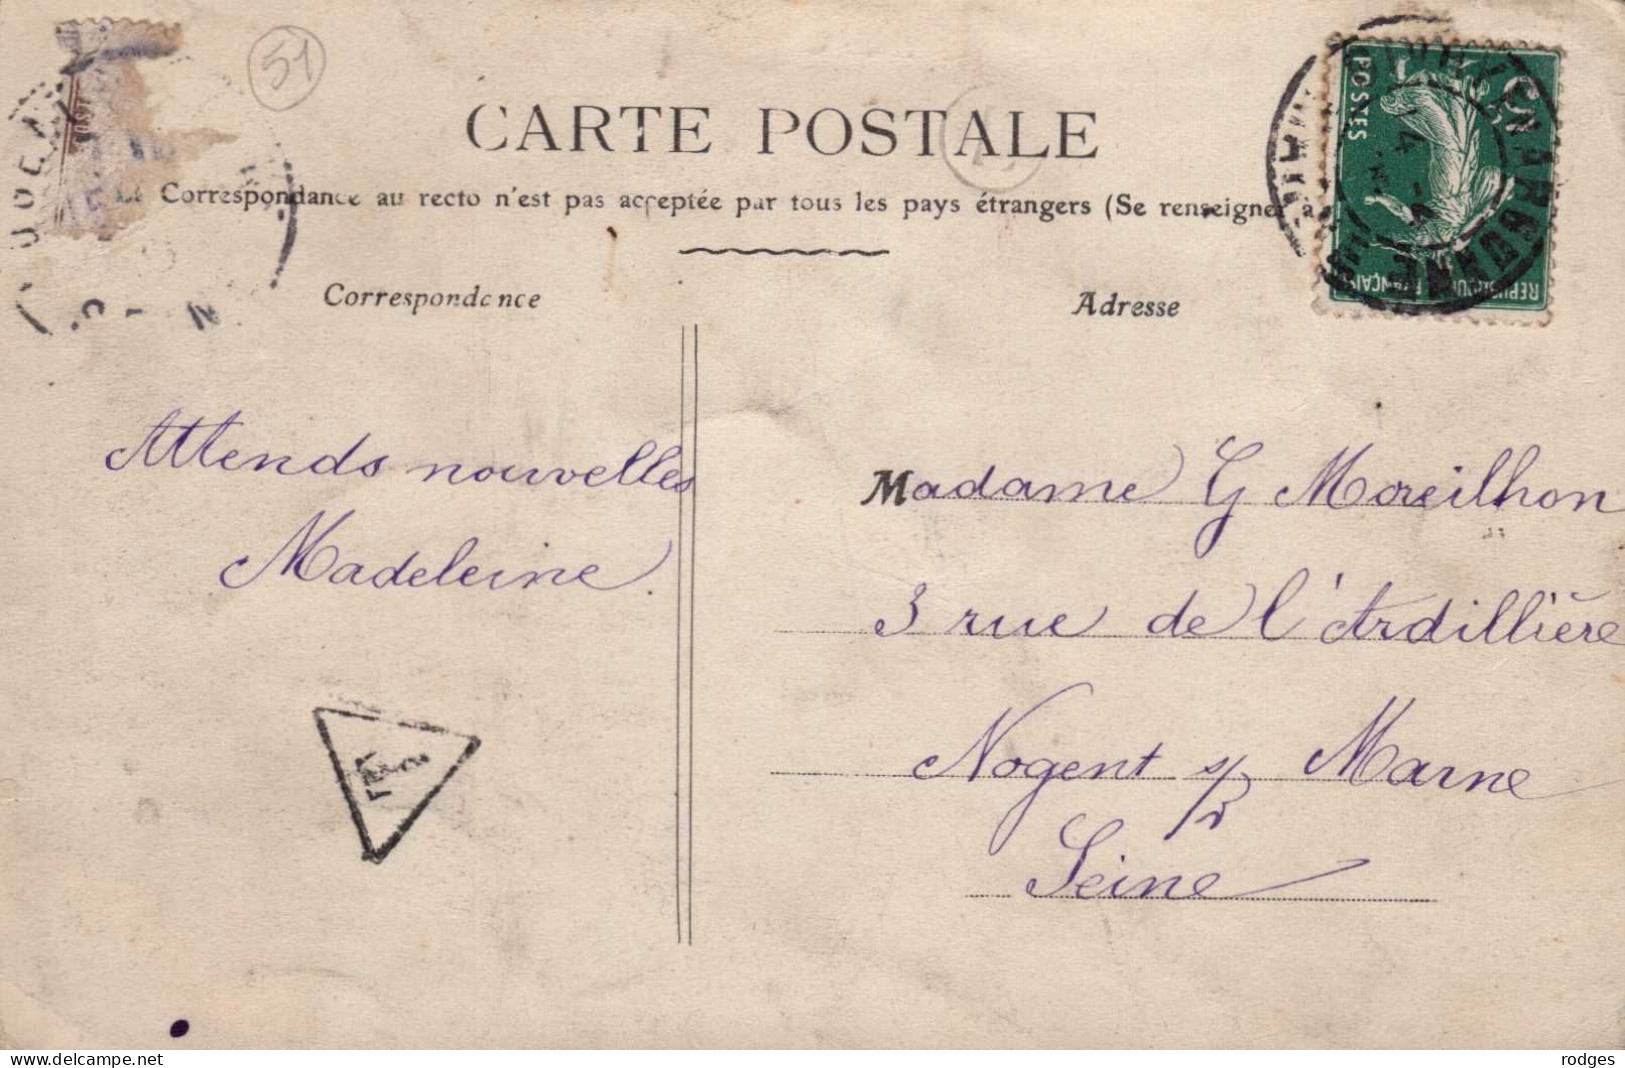 51
CARTE POSTALE
La Correspondance au recto n'est pas acceptée par tous les pays étrangers (Se renseigner à
Correspondance
Adresse
POSTES
REPUBLIQUE FRANÇAISE
Attends nouvelles
Madeleine.
Madame G Moreilhon
3 rue de l'Ardillière
Nogent s/ Marne
Seine
rodges